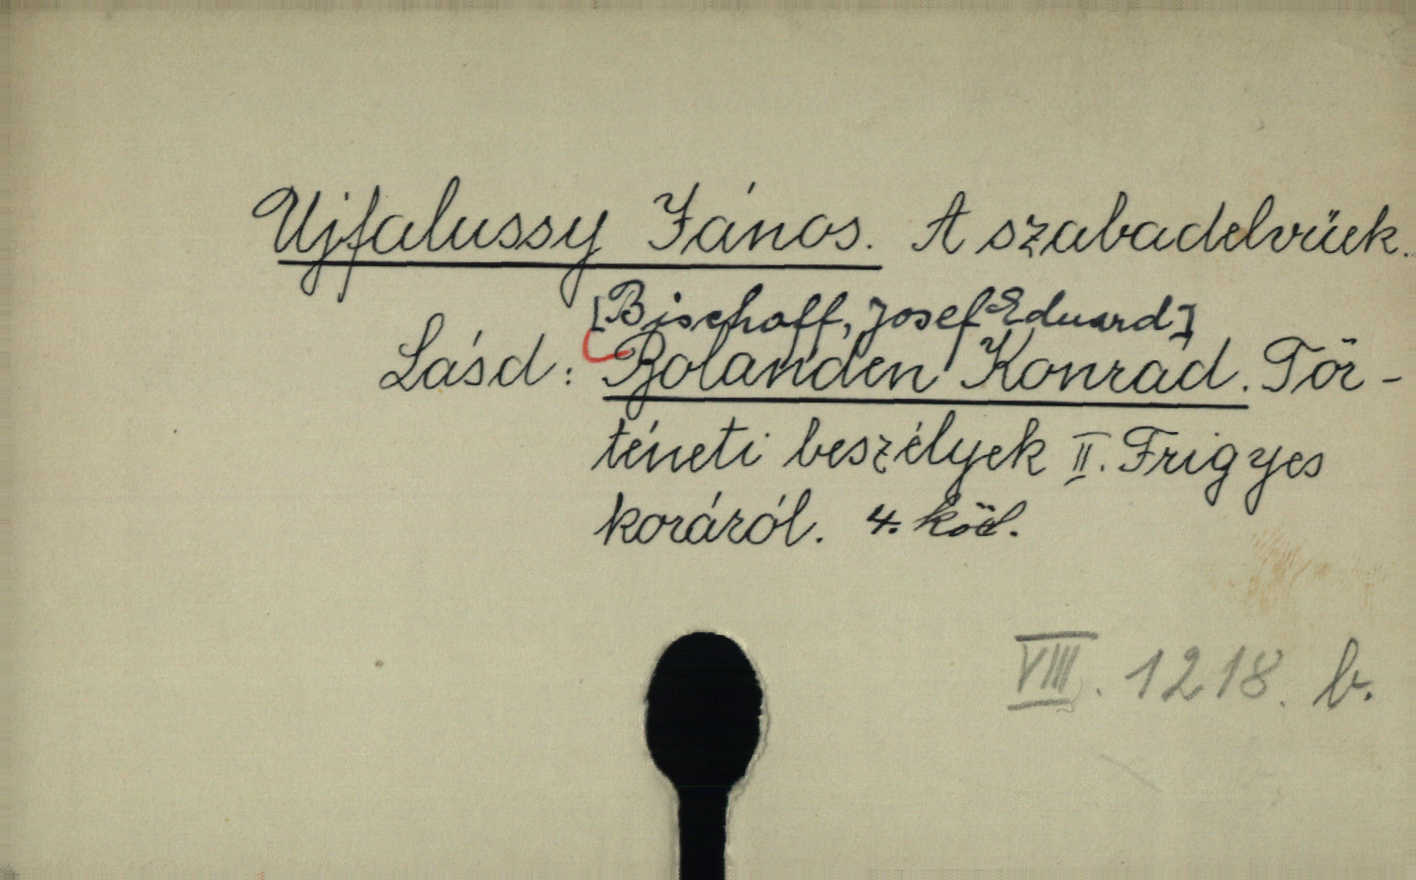 Ujfalussy János. A szabadelvüek.
[Bischoff, Josef Eduard]
Lásd: Bolanden Konrád. Tör-
téneti beszélyek II. Frigyes
koráról. 4. köt.
VIII. 1218. b.